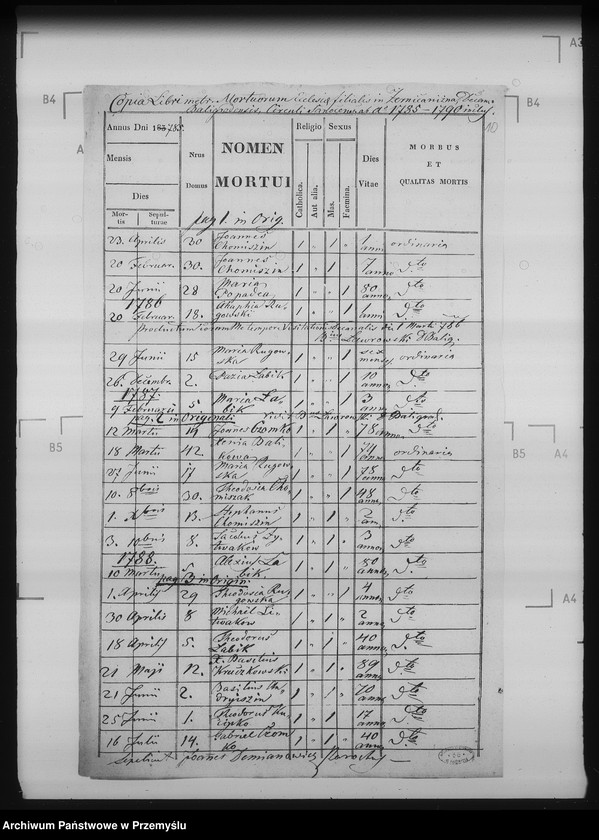 Copia Libri metr. Mortuorum Ecclesiæ filialis in Żernicaniżna Decan.
Baligrodensis, Circuli Sanocen. ab Ao 1785 – 1790 incl.
10
Annus Dni 1785.
Mensis
Dies
Mortis
Sepulturae
Nrus Domus
NOMEN MORTUI
Religio
Catholica.
Aut alia.
Sexus
Mas.
Faemina.
Dies Vitae
MORBUS ET QUALITAS MORTIS
pag 1. in Orig.
23. Aprilis 20 Joannes Chomiszin 1 „ 1 „ 1 anno ordinaria
20 Februar. 30. Joannes Chomiszin 1 „ 1 „ 7 anno dto
20 Junii 28 Maria Popadca 1 „ „ 1 80 anno, dto
1786
20 Februar. 18. Ahaphia Rugowski 1 „ „ 1 1 anni dto
29 Junii 15 Maria Rugowska 1 „ „ 1 sex menses ordinaria
26. Decembr. 2. Łabik 1 „ „ 1 10 anno, dto
1787.
9 Februarii 5. Maria Łabik 1 „ „ 1 3 anno dto
pag. 2 in Originali
12 Martii 19 Joannes 1 „ 1 „ 78 anno dto
18 Martii 42. Xenia Balikowa 1 „ „ 1 74 anno ordinaria
27 Junii 17 Maria Rugowska 1 „ „ 1 78 anno dto
10. 8bris 30. Theodosia Chomiszak 1 „ „ 1 48 anno dto
1. Xbris 13. Stephanus Chomiszin 1 „ 1 „ 2 an. dto
3. 10bris 8. Jacobus Lytwakow 1 „ 1 „ 3 anno, dto
1788.
10 Martii 5 Alexius Łabik. 1 „ 1 „ 80 annos, dto
pag 3 in Origin.
1. Aprilis 29 Theodosia Rugowska 1 „ „ 1 4 anno, dto
30 Aprilis 8 Michaël Litwakow 1 „ 1 „ 2 anno, dto
18 Aprilis 5. Theodorus Łabik 1 „ 1 „ 40 anno, dto
21 Maji 12. Basilius Kruszkowski 1 „ 1 „ 89 anno, dto
21 Junii 2. Basilius Andryiszin 1 „ 1 „ 70 anno, dto
25 Junii 1. Theodorus 1 „ 1 „ 17 anno, dto
16 Julii 14. Gabriel 1 „ 1 „ 40 anno, dto
Sepelivit Joannes Demianowicz Parochus
A3
B4
B4
A
B5
A5
A4
Archiwum Państwowe w Przemyślu